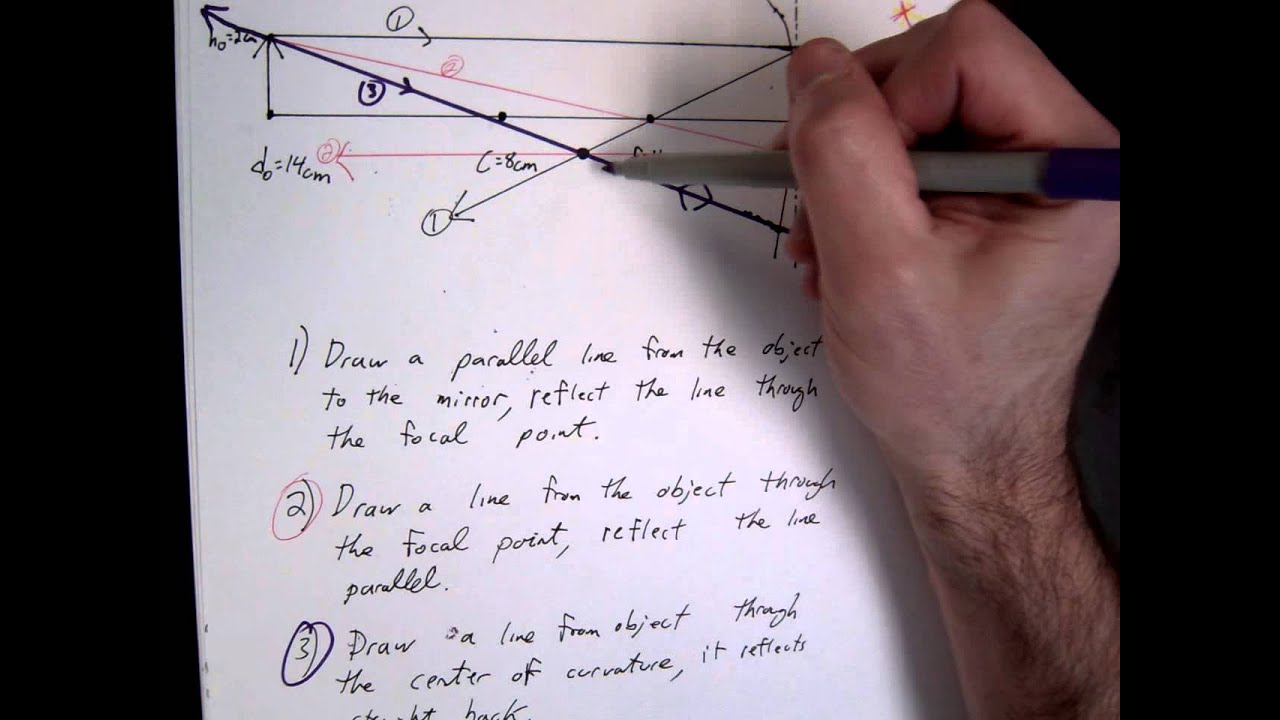 ①
h₀=2cm
②
③
②
d₀=14cm
C=8cm
①
1) Draw a parallel line from the object
to the mirror, reflect the line through
the focal point.
2) Draw a line from the object through
the focal point, reflect the line
parallel.
3) Draw a line from object through
the center of curvature, it reflects
straight back.